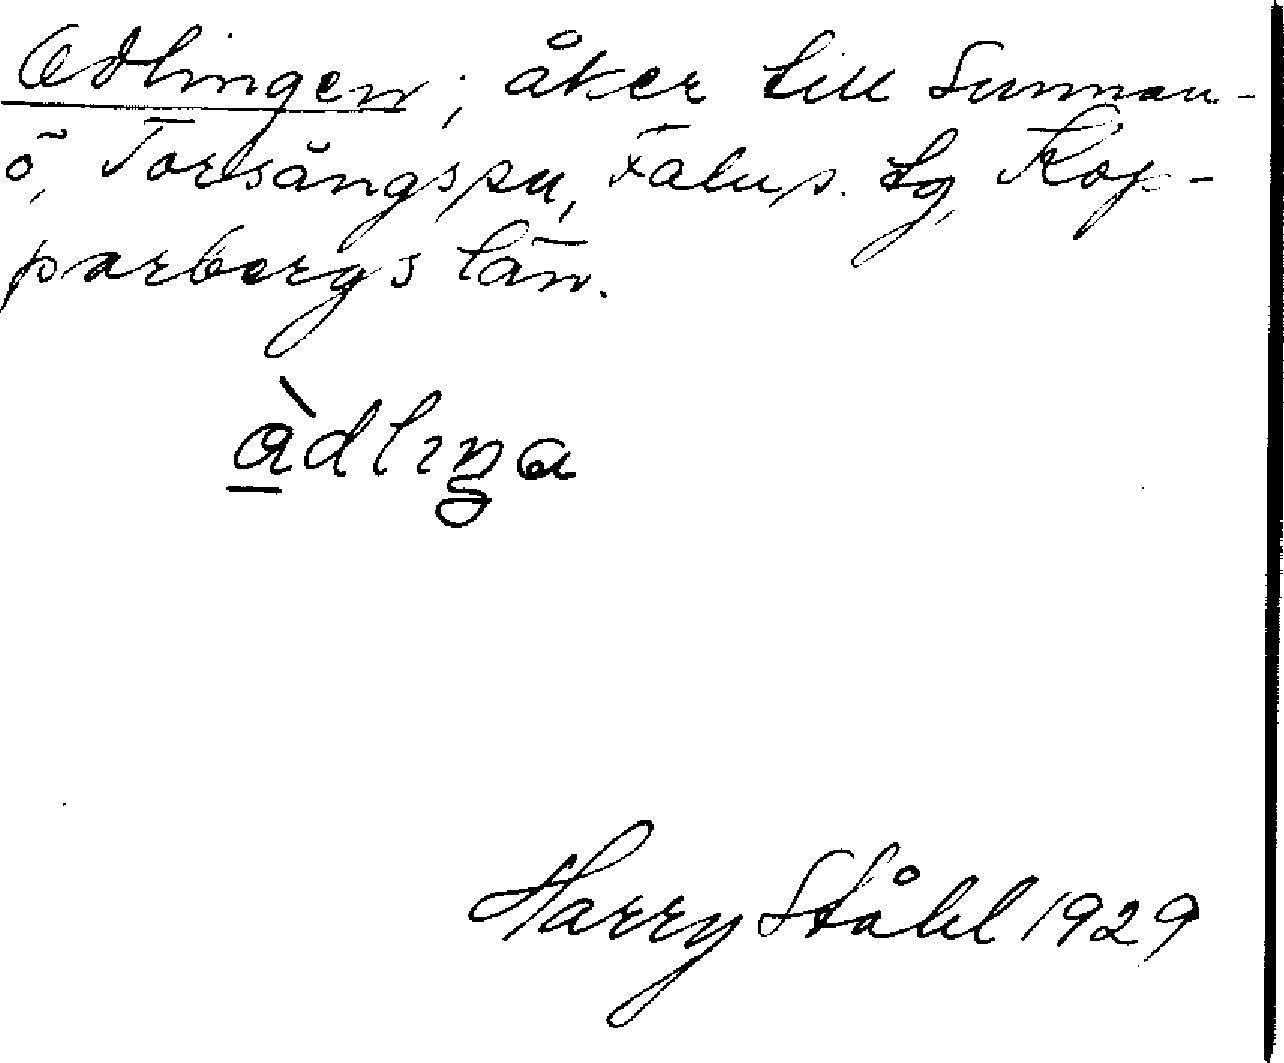 Odlingen; åker till Sunnan-
ö, Torsångs sn, Falu s. tg, Kop-
parbergs län.
Harry Ståhl 1929